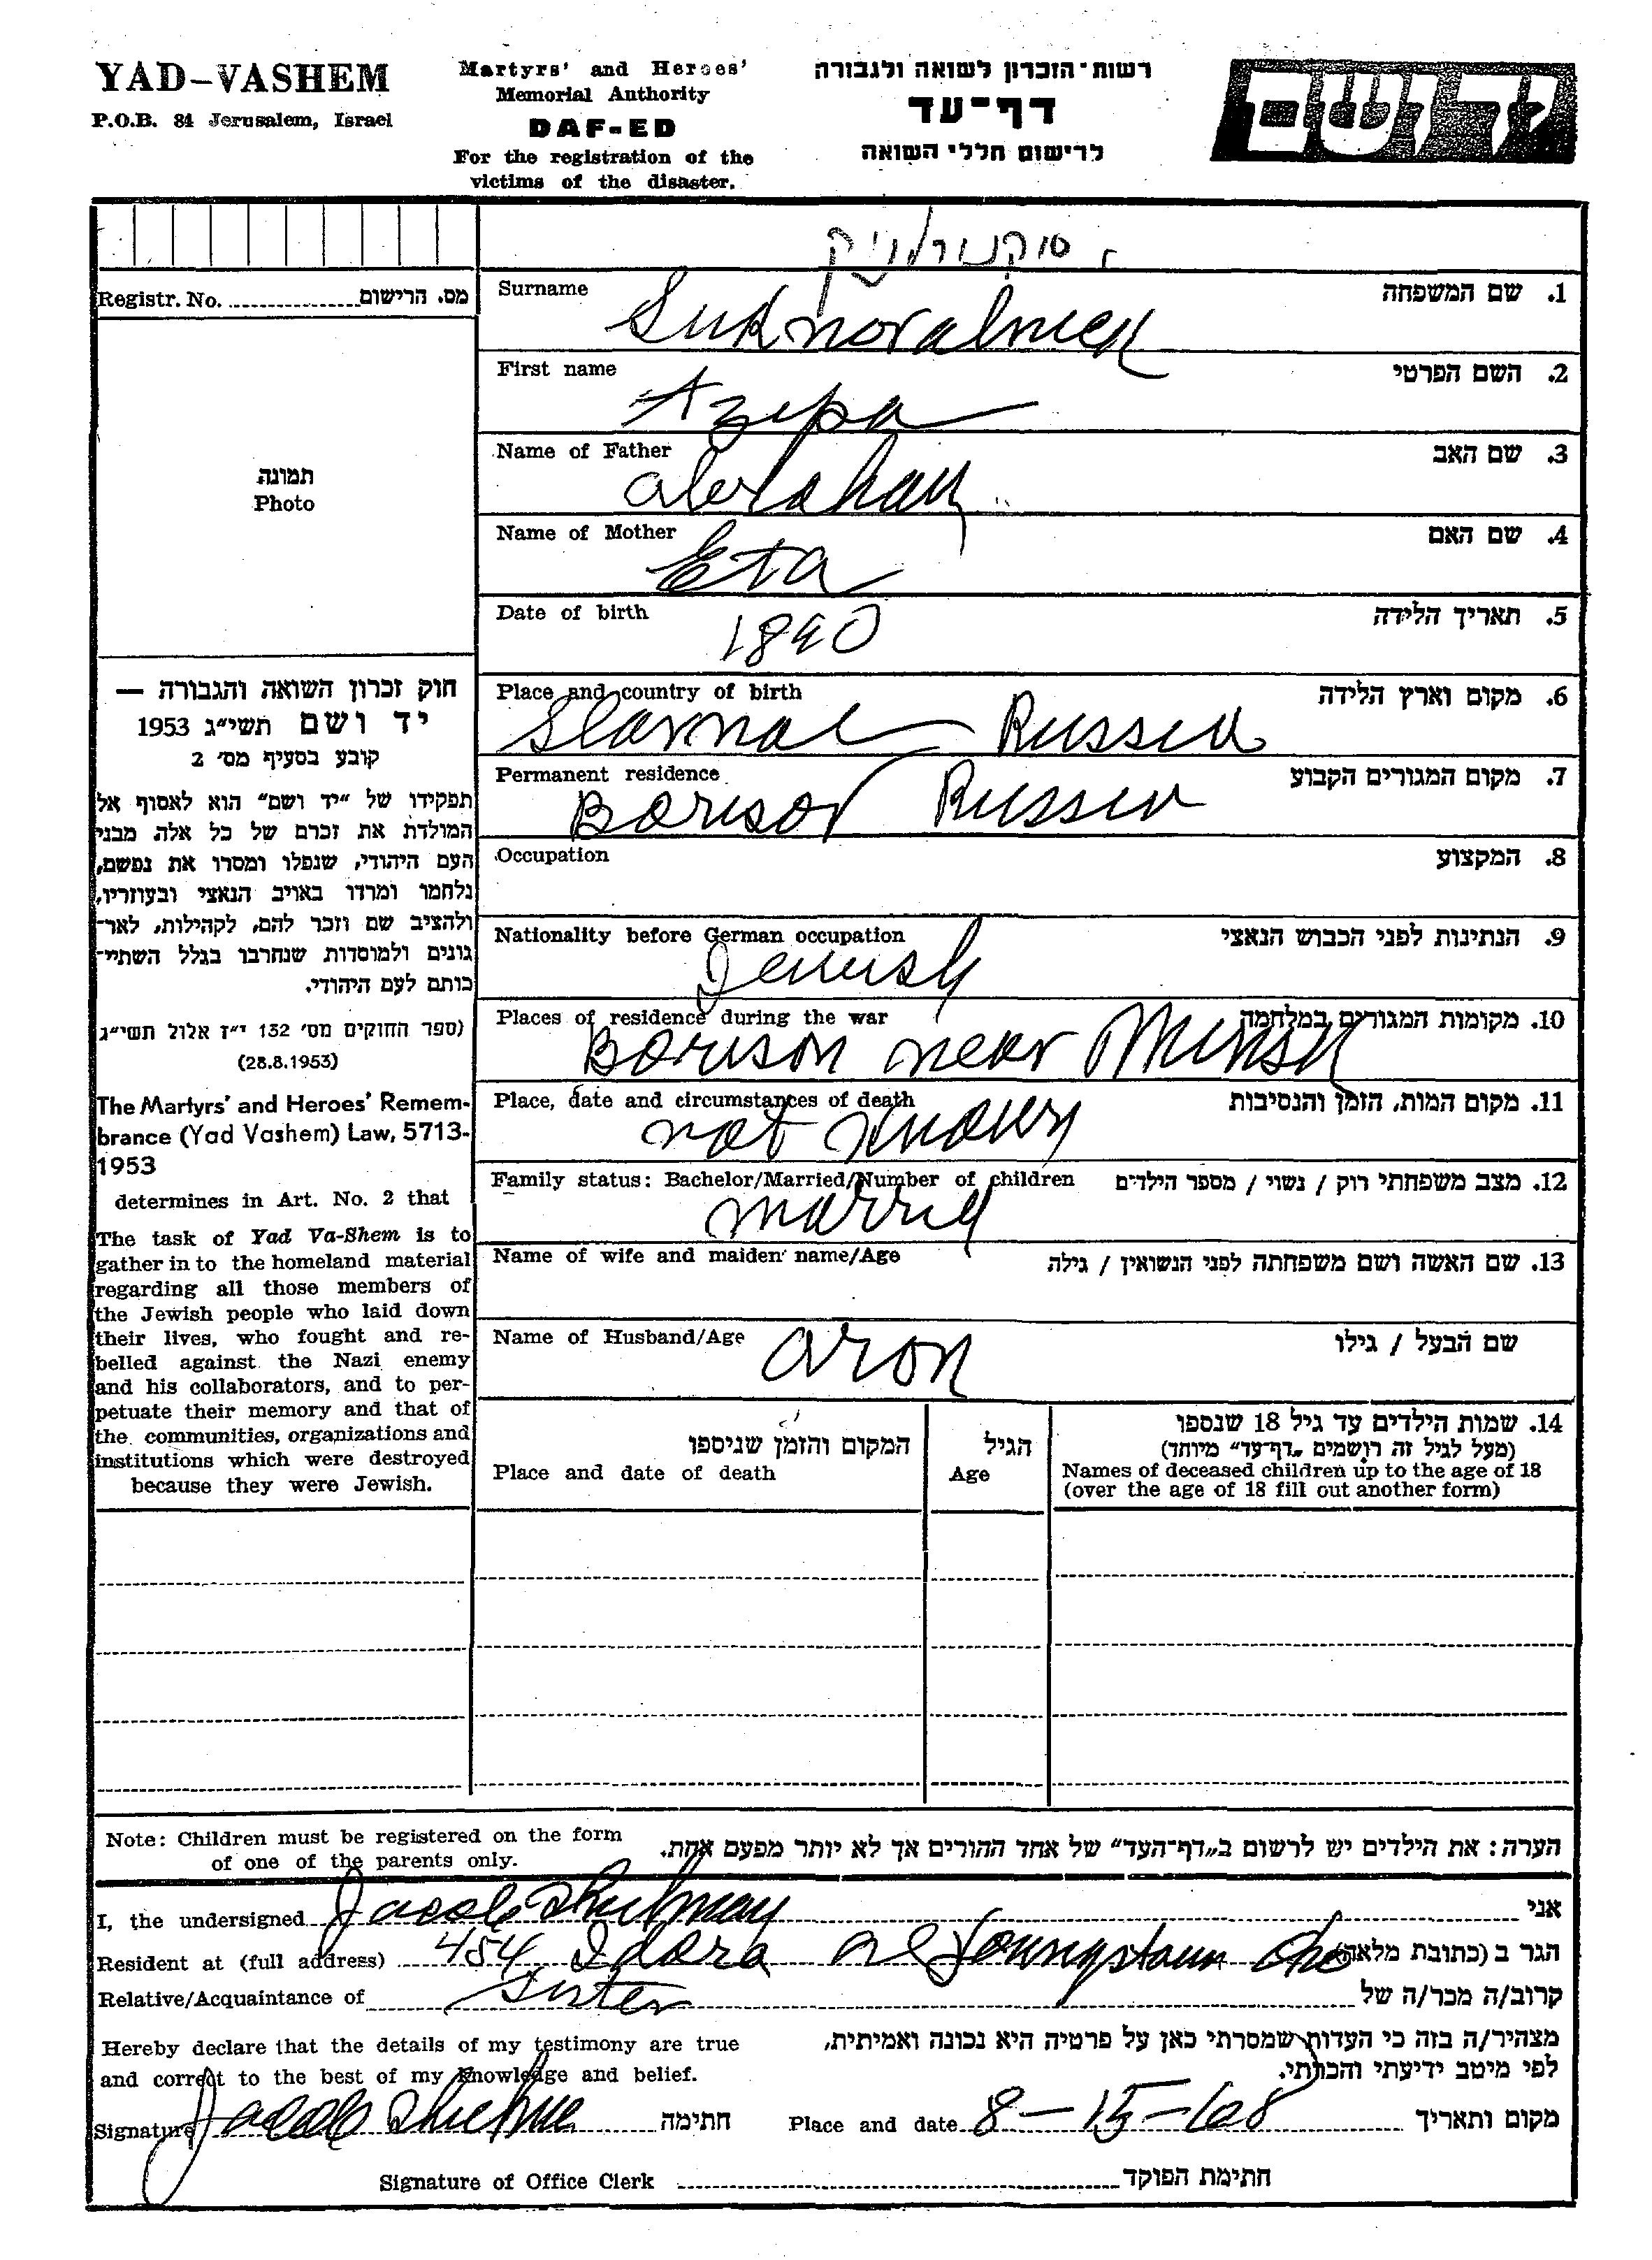 YAD-VASHEM
P.O.B. 84 Jerusalem, Israel
Martyrs' and Heroes'
Memorial Authority
DAF-ED
For the registration of the
victims of the disaster.
רשות-הזכרון לשואה ולגבורה
דף-עד
לרישום חללי השואה
יד ושם
סוקנורלניק
Registr. No. מס. הרישום
תמונה
Photo
חוק זכרון השואה והגבורה —
יד ושם תשי"ג 1953
קובע בסעיף מס' 2
תפקידו של "יד ושם" הוא לאסוף אל
המולדת את זכרם של כל אלה מבני
העם היהודי, שנפלו ומסרו את נפשם,
נלחמו ומרדו באויב הנאצי ובעוזריו,
ולהציב שם וזכר להם, לקהילות, לאר-
גונים ולמוסדות שנחרבו בגלל השתיי-
כותם לעם היהודי.
(ספר החוקים מס' 132 י"ז אלול תשי"ג
(28.8.1953)
The Martyrs' and Heroes' Remem-
brance (Yad Vashem) Law, 5713-
1953
determines in Art. No. 2 that
The task of Yad Va-Shem is to
gather in to the homeland material
regarding all those members of
the Jewish people who laid down
their lives, who fought and re-
belled against the Nazi enemy
and his collaborators, and to per-
petuate their memory and that of
the communities, organizations and
institutions which were destroyed
because they were Jewish.
Surname 1. שם המשפחה
First name 2. השם הפרטי
Name of Father 3. שם האב
Abraham
Name of Mother 4. שם האם
Eta
Date of birth 5. תאריך הלידה
1890
Place and country of birth 6. מקום וארץ הלידה
Permanent residence 7. מקום המגורים הקבוע
Borisov
Occupation 8. המקצוע
Nationality before German occupation 9. הנתינות לפני הכבוש הנאצי
Jewish
Places of residence during the war 10. מקומות המגורים במלחמה
near Minsk
Place, date and circumstances of death 11. מקום המות, הזמן והנסיבות
not
Family status: Bachelor/Married/Number of children 12. מצב משפחתי רוק / נשוי / מספר הילדים
Name of wife and maiden name/Age 13. שם האשה ושם משפחתה לפני הנשואין / גילה
Name of Husband/Age שם הבעל / גילו
Aron
המקום והזמן שניספו
Place and date of death
הגיל
Age
14. שמות הילדים עד גיל 18 שנספו
(מעל לגיל זה רושמים "דף-עד" מיוחד)
Names of deceased children up to the age of 18
(over the age of 18 fill out another form)
Note: Children must be registered on the form
of one of the parents only.
הערה: את הילדים יש לרשום ב"דף-העד" של אחד ההורים אך לא יותר מפעם אחת.
I, the undersigned Jacob Shulman אני
Resident at (full address) 454 Idora Youngstown Ohio הגר ב (כתובת מלאה)
Relative/Acquaintance of Sister קרוב/ה מכר/ה של
Hereby declare that the details of my testimony are true
and correct to the best of my knowledge and belief.
מצהיר/ה בזה כי העדות שמסרתי כאן על פרטיה היא נכונה ואמיתית,
לפי מיטב ידיעתי והכרתי.
Signature Jacob חתימה Place and date 8-15-68 מקום ותאריך
Signature of Office Clerk חתימת הפוקד